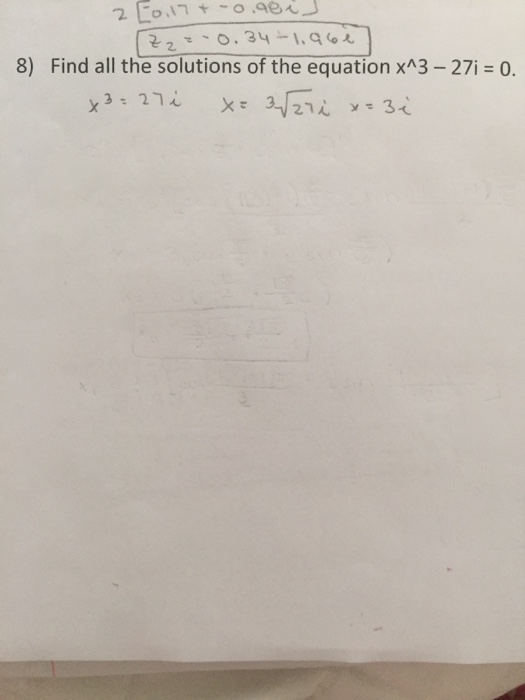 2 [-0.17 + -0.98i]
z₂ = -0.34 - 1.96i
8) Find all the solutions of the equation x^3 – 27i = 0.
x³ = 27i x = ³√27i x = 3i